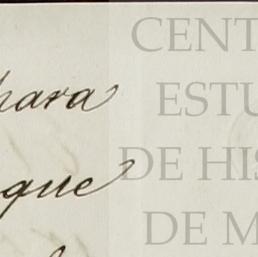 para
que
CENT
ESTU
DE HIS
DE M